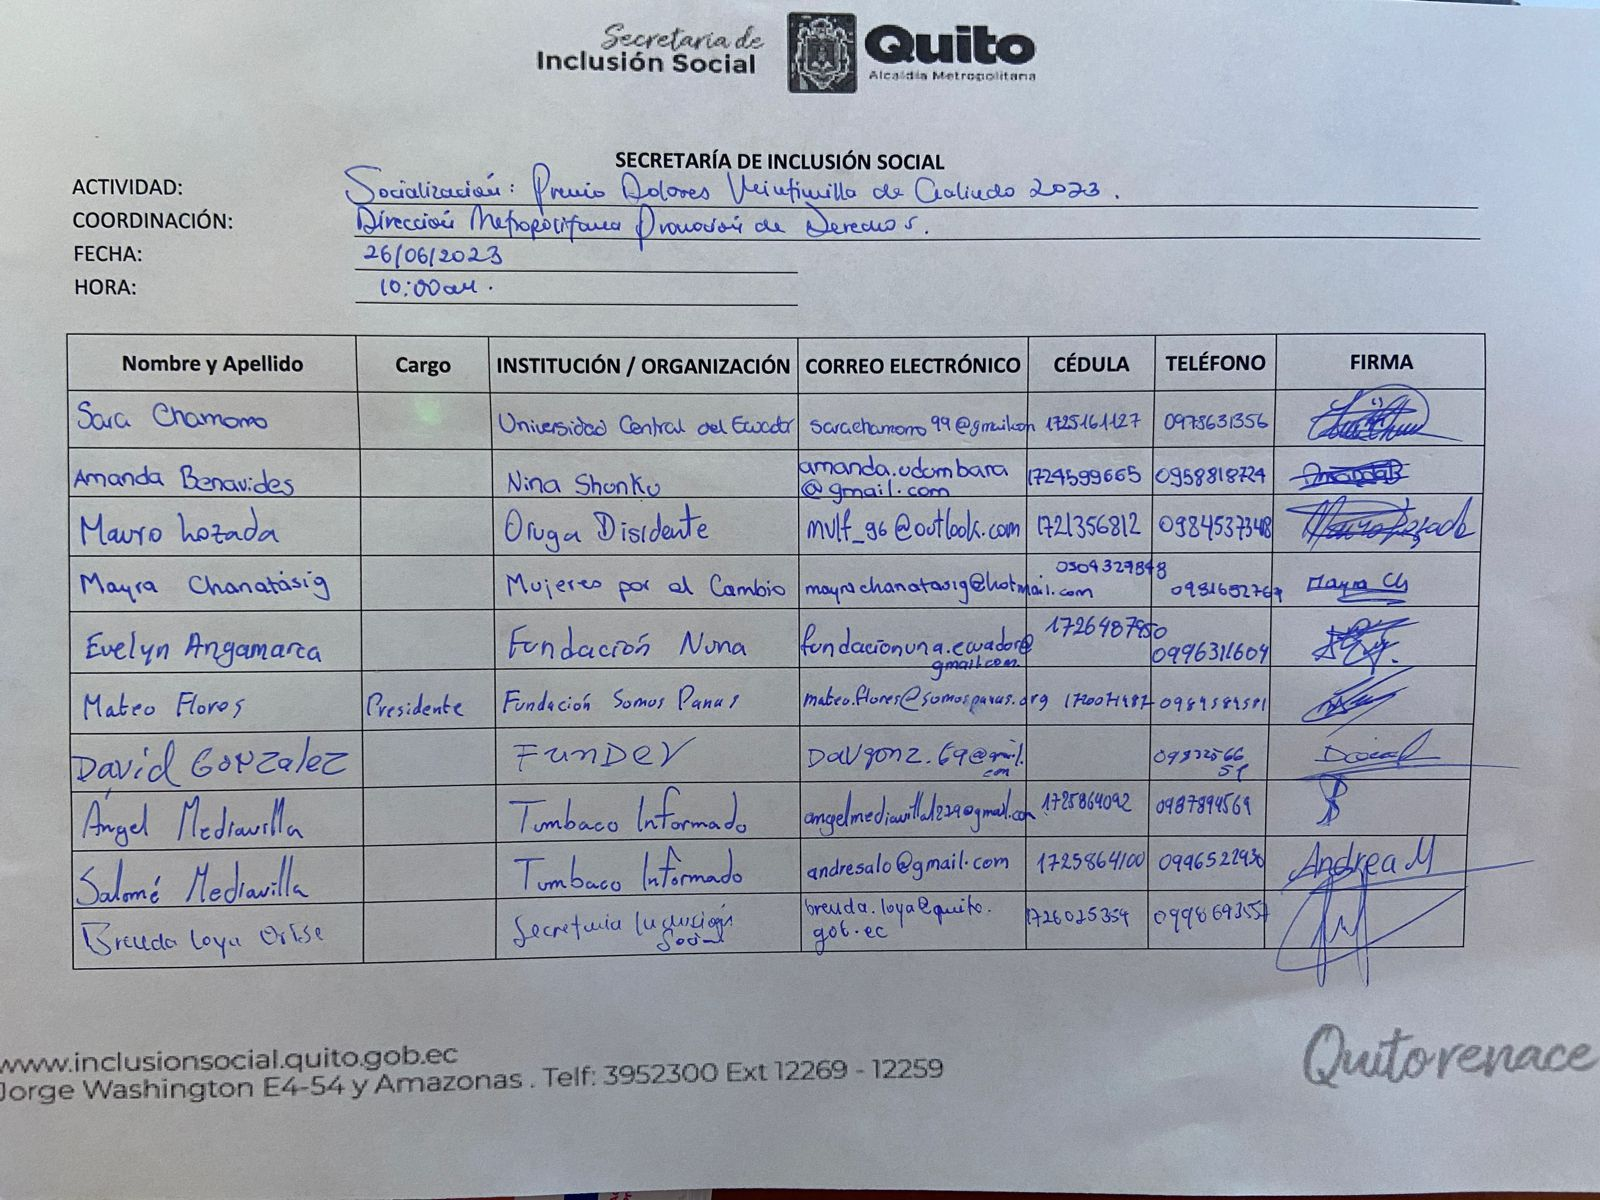 Secretaría de
Inclusión Social
Quito
Alcaldía Metropolitana
SECRETARÍA DE INCLUSIÓN SOCIAL
ACTIVIDAD: Socialización: Premio Dolores Veintimilla de Galindo 2023.
COORDINACIÓN: Dirección Metropolitana Promoción de Derechos.
FECHA: 26/06/2023
HORA: 10:00am.
Nombre y Apellido Cargo INSTITUCIÓN / ORGANIZACIÓN CORREO ELECTRÓNICO CÉDULA TELÉFONO FIRMA
Sara Chamorro Universidad Central del Ecuador sarachamorro99@gmail.com 1725161127 0978631356
Amanda Benavides Nina Shunku amanda.udumbara
@gmail.com 1724599665 0958818724 AmandaB
Mauro Lozada Oruga Disidente mvlf_96@outlook.com 1721356812 0984537348 Mauro Lozada
Mayra Chanatásig Mujeres por el Cambio mayrachanatasig@hotmail.com 0504329848 0981652767 Mayra Ch
Evelyn Angamarca Fundación Nuna fundacionuna.ecuador@
gmail.com. 1726487950 0996311604
Mateo Flores Presidente Fundación Somos Panas mateo.flores@somospanas.org 1720071487 0984584581
David GONZALEZ FUNDER Davgonz.69@gmail.
com 09832566
51 David
Ángel Mediavilla Tumbaco Informado angelmediavilla1279@gmail.com 1725864092 0987894569
Salomé Mediavilla Tumbaco Informado andresalo@gmail.com 1725864100 0996522930 Andrea M
Brenda Loya Secretaria Inclusión
Social brenda.loya@quito.
gob.ec 1726025354 0998693557
www.inclusionsocial.quito.gob.ec
Jorge Washington E4-54 y Amazonas . Telf: 3952300 Ext 12269 - 12259
Quito renace